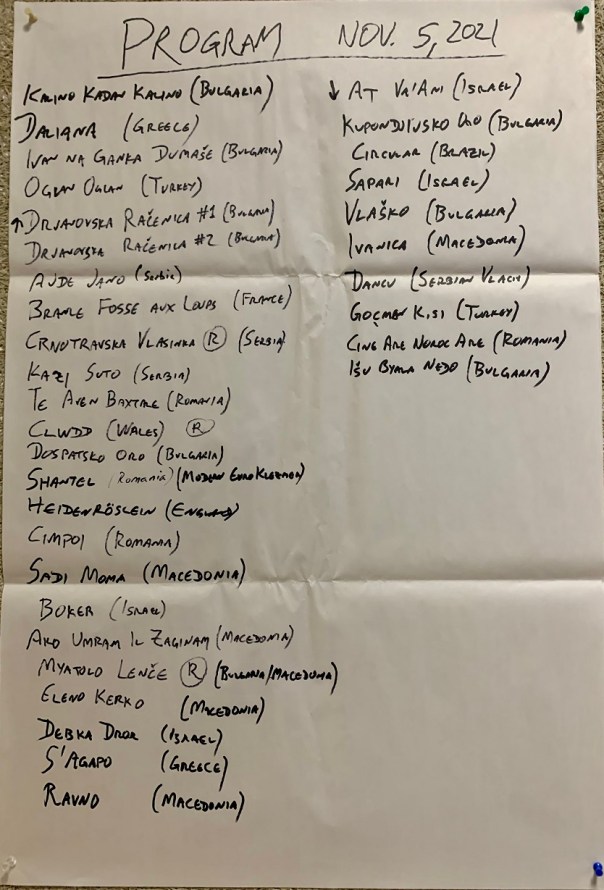 PROGRAM NOV. 5, 2021
KALINO KADAN KALINO (BULGARIA)
DALIANA (GREECE)
IVAN NA GANKA DUMAŠE (BULGARIA)
OGLAN OGLAN (TURKEY)
↑ DRJANOVSKA RAČENICA #1 (BULGARIA)
DRJANOVSKA RAČENICA #2 (BULGARIA)
AJDE JANO (Serbia)
BRANLE FOSSE AUX LOUPS (FRANCE)
CRNOTRAVSKA VLASINKA Ⓡ (SERBIA)
KAZI SUTO (SERBIA)
TE AVEN BAXTALE (ROMANIA)
CLWDD (WALES) Ⓡ
DOSPATSKO ORO (BULGARIA)
SHANTEL (Romania) (MODERN EURO KLEZMER)
HEIDENRÖSLEIN (ENGLAND)
CIMPOI (ROMANIA)
SADI MOMA (MACEDONIA)
BOKER (ISRAEL)
AKO UMRAM IL ZAGINAM (MACEDONIA)
MYATOLO LENČE Ⓡ (BULGARIA/MACEDONIA)
ELENO KERKO (MACEDONIA)
DEBKA DROR (ISRAEL)
S'AGAPO (GREECE)
RAVNO (MACEDONIA)
↓ AT VA'ANI (ISRAEL)
KUPONDJIJSKO ORO (BULGARIA)
CIRCULAR (BRAZIL)
SAPARI (ISRAEL)
VLAŠKO (BULGARIA)
IVANICA (MACEDONIA)
DANCU (SERBIAN VLACH)
GOÇMEN KISI (TURKEY)
CINE ARE NOROC ARE (ROMANIA)
IŠU BYALA NEDO (BULGARIA)